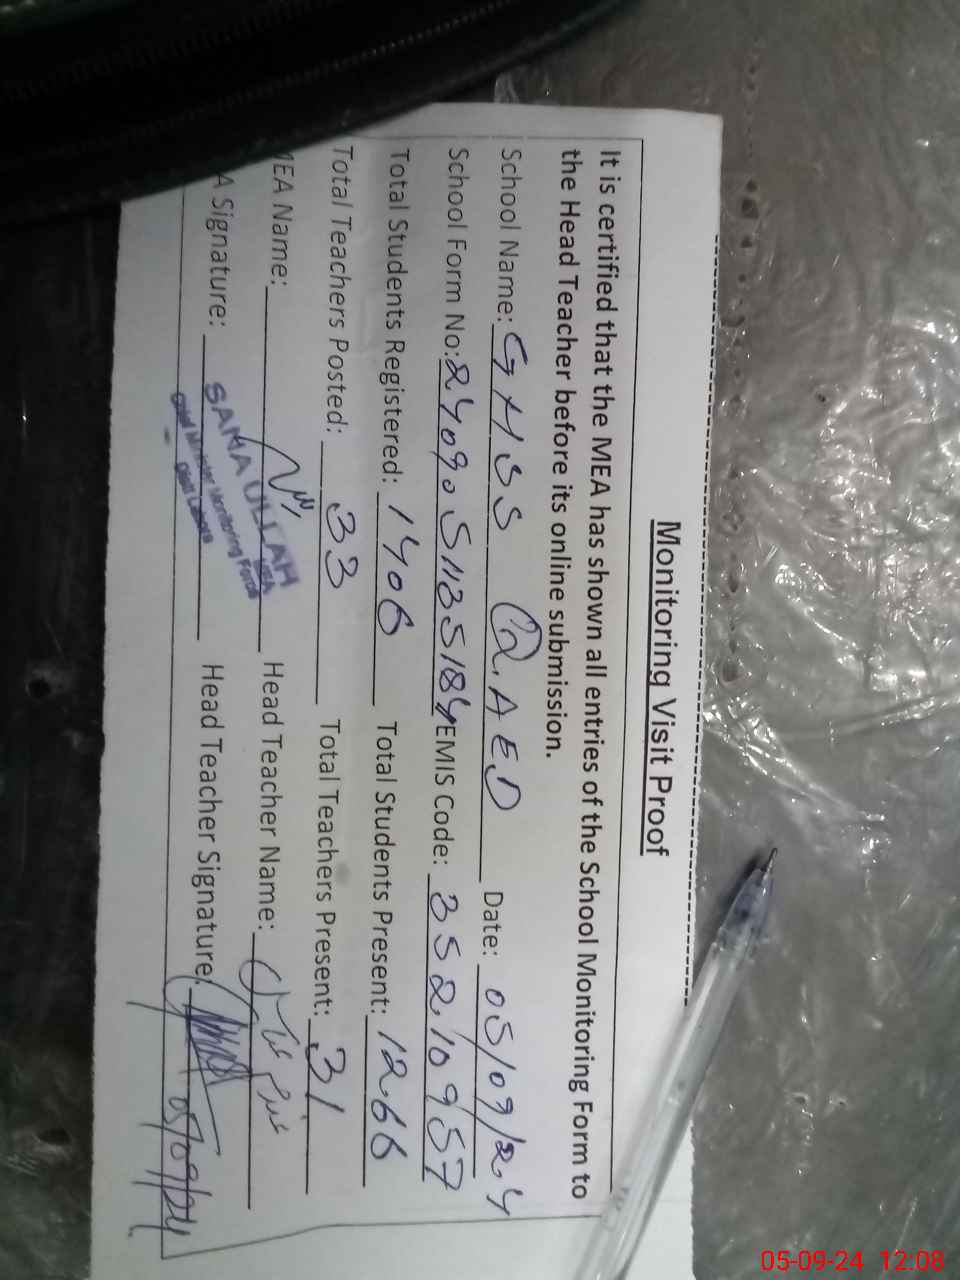 Monitoring Visit Proof
It is certified that the MEA has shown all entries of the School Monitoring Form to
the Head Teacher before its online submission.
School Name: GHSS Q.AED Date: 05/09/24
School Form No: 2409051135184 EMIS Code: 35210957
Total Students Registered: 1406 Total Students Present: 1266
Total Teachers Posted: 33 Total Teachers Present: 31
EA Name: Head Teacher Name:
A Signature: Head Teacher Signature:
SAMA ULLAH
MEA
Chief Minister Monitoring Force
Distt Lahore
05/09/24
05-09-24 12:08